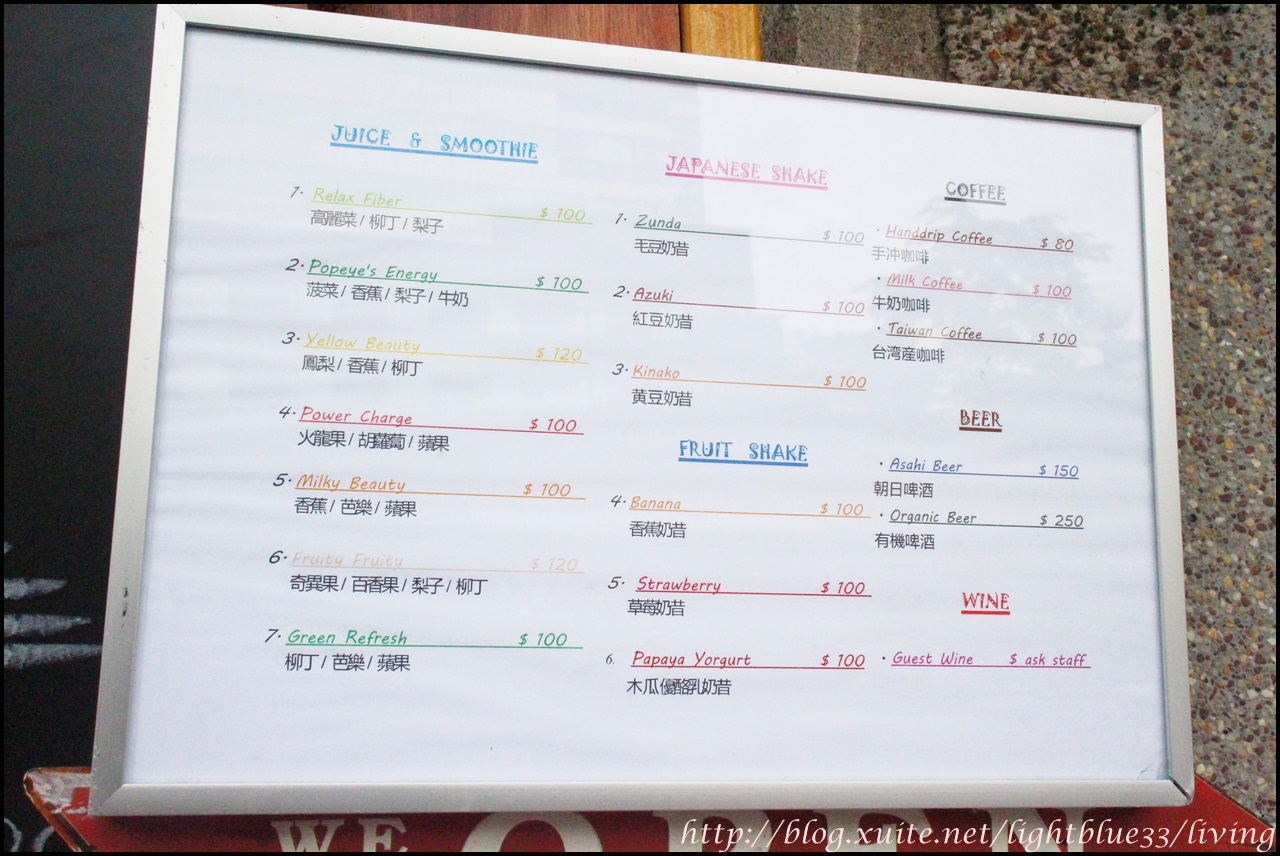 JUICE & SMOOTHIE
1. Relax Fiber $ 100
高麗菜 / 柳丁 / 梨子
2. Popeye's Energy $ 100
菠菜 / 香蕉 / 梨子 / 牛奶
3. Yellow Beauty $ 120
鳳梨 / 香蕉 / 柳丁
4. Power Charge $ 100
火龍果 / 胡蘿蔔 / 蘋果
5. Milky Beauty $ 100
香蕉 / 芭樂 / 蘋果
6. Fruity Fruity $ 120
奇異果 / 百香果 / 梨子 / 柳丁
7. Green Refresh $ 100
柳丁 / 芭樂 / 蘋果
JAPANESE SHAKE
1. Zunda $ 100
毛豆奶昔
2. Azuki $ 100
紅豆奶昔
3. Kinako $ 100
黄豆奶昔
FRUIT SHAKE
4. Banana $ 100
香蕉奶昔
5. Strawberry $ 100
草莓奶昔
6. Papaya Yorgurt $ 100
木瓜優酪乳奶昔
COFFEE
· Handdrip Coffee $ 80
手冲咖啡
· Milk Coffee $ 100
牛奶咖啡
· Taiwan Coffee $ 100
台湾産咖啡
BEER
· Asahi Beer $ 150
朝日啤酒
· Organic Beer $ 250
有機啤酒
WINE
· Guest Wine $ ask staff
WE OPEN
http://blog.xuite.net/lightblue33/living